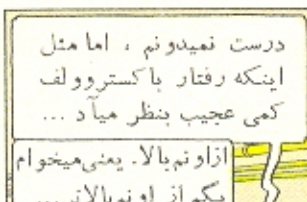 درست نمیدونم ، اما مثل
اینکه رفتار باکستروولف
کمی عجیب بنظر میآد ...
ازاونم بالا. یعنی میخوام
بگم از اونم بالاتر ...